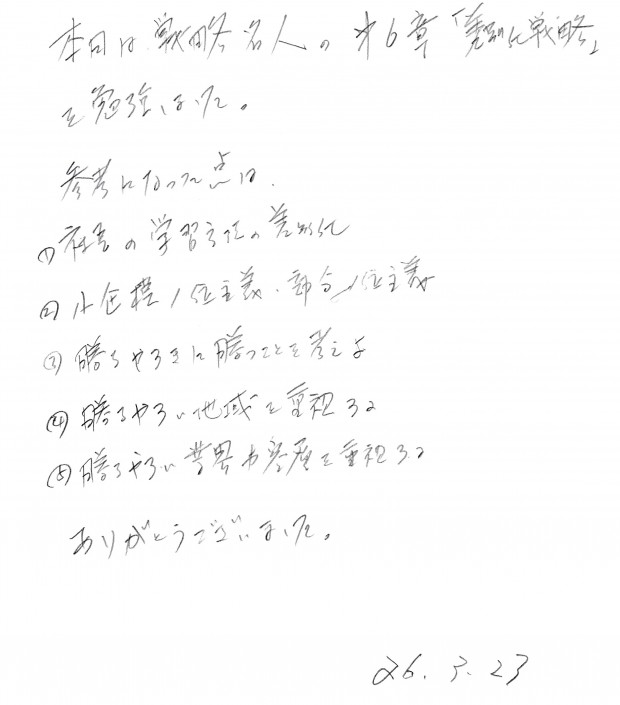 本日は戦略名人の第6章「差別化戦略」
を勉強しました。
参考になった点は、
①社長の学習方法の差別化
②小規模1位主義・部分1位主義
③勝ちやすきに勝つことを考えよ
④勝ちやすい地域を重視する
⑤勝ちやすい業界や客層を重視する
ありがとうございました。
26.3.23